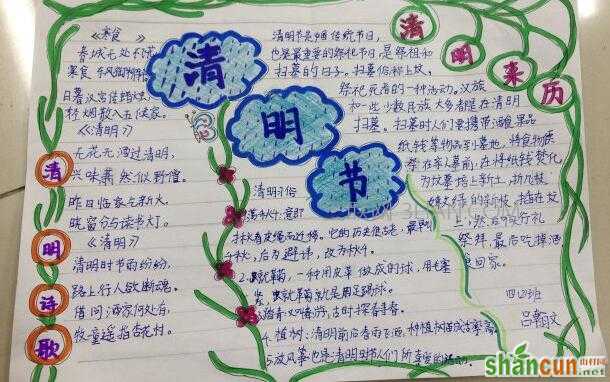 《寒食》
春城无处不飞
寒食东风御柳斜
日暮汉宫传蜡烛,
轻烟散入五侯家。
《清明》
无花无酒过清明,
兴味萧然似野僧。
昨日临家乞新火
晓窗分与读书灯。
《清明》
清明时节雨纷纷,
路上行人欲断魂。
借问酒家何处有,
牧童遥指杏花村。
清
明
诗
歌
清
明
节
清明节是中国传统节日,
也是最重要的祭祀节日 是祭祖和
扫墓的日子。扫墓俗称上坟,
祭祀死者的一种活动。汉族
和一些少数民族大多都是在清明
扫墓。扫墓时人们要携带酒食果品
纸钱等物品到墓地,将食物质
祭在亲人墓前,在将纸钱焚化
为坟墓培上新土,折几枝
嫩绿的新枝 插在坟
上,然后叩头行礼
祭拜,最后吃掉酒
家回家。
清
明
来
历
清明习俗
2.蹴鞠,一种用皮革做成的球,用毛塞
紧,蹴鞠就是用足踢球。
3.踏青:叫春游,古时探春寻春。
4.植树:清明前后春雨飞洒,种植树苗成
5.放风筝也是清明时节人们所喜爱的活动。
四(2)班
shancun.net
山村网